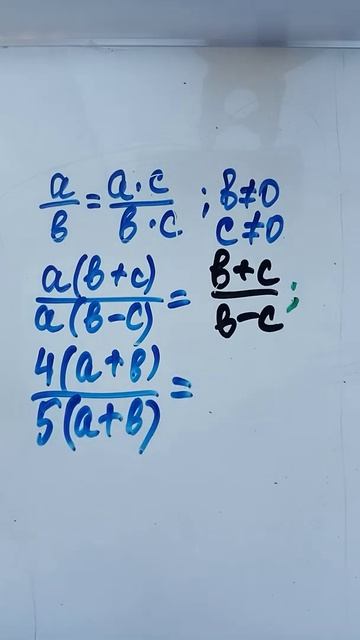 a/b = a·c/b·c ; b≠0
c≠0
a(b+c)/a(b-c) = b+c/b-c ;
4(a+b)/5(a+b) =